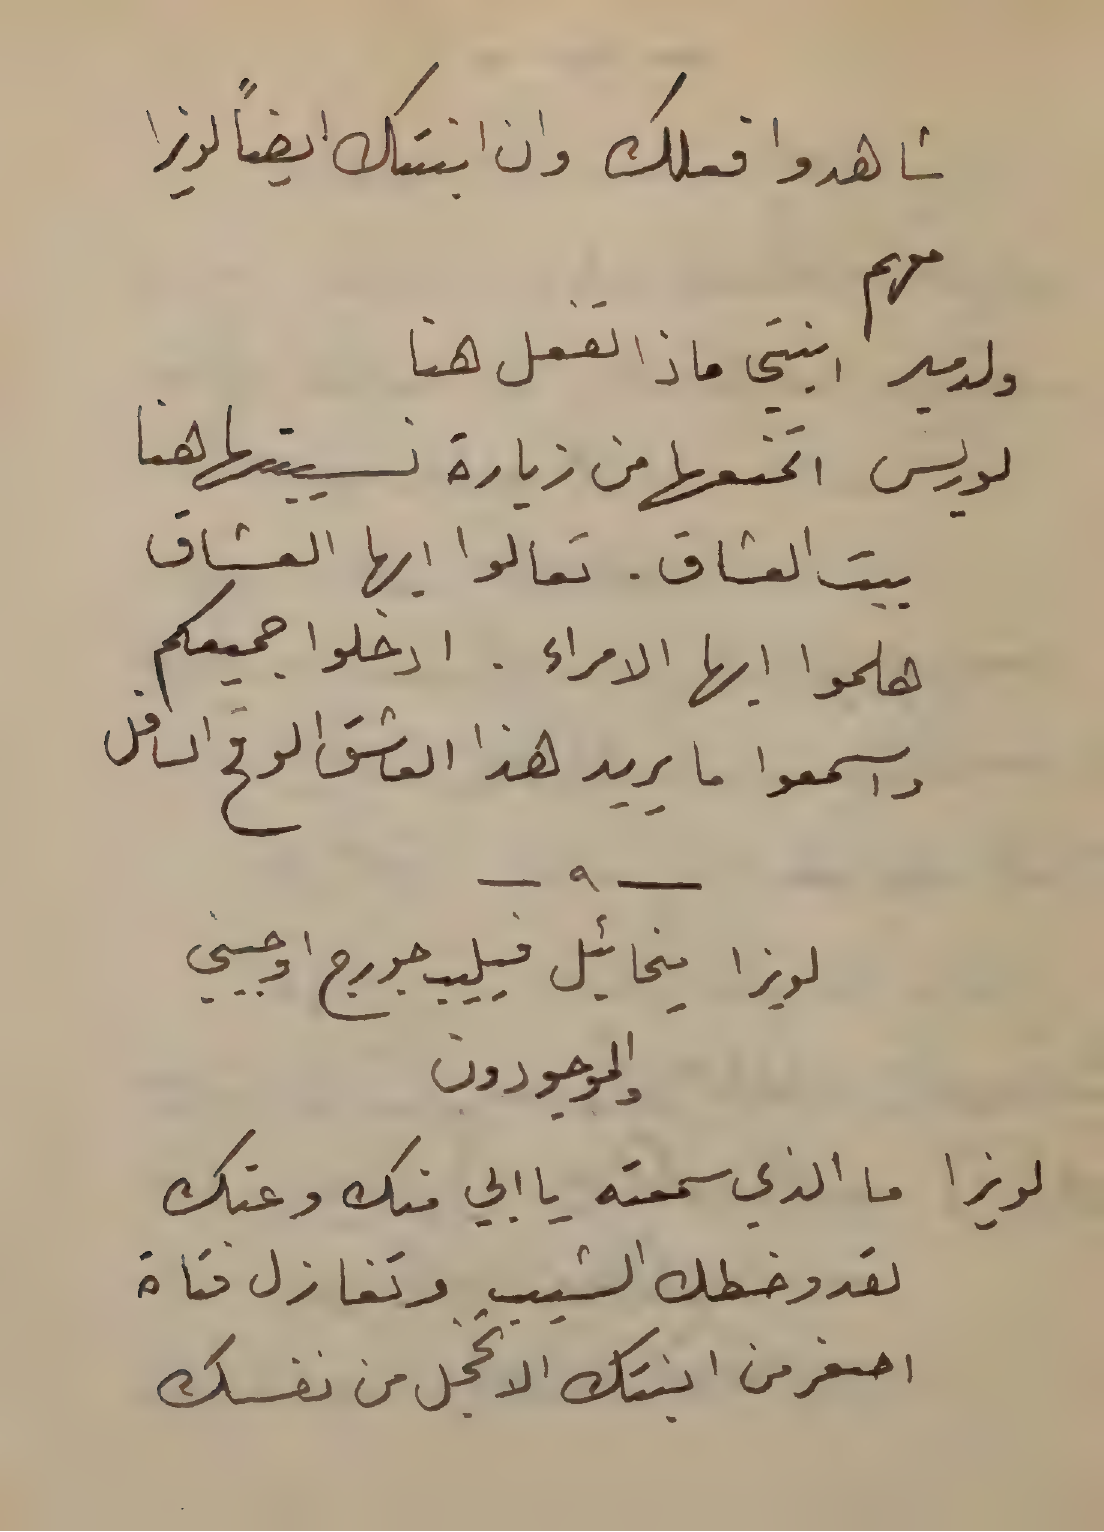 شاهدوا فعلك وان ابنتك ايضاً لويزا
معهم
ولدمير ابنتي ماذا تفعل هنا
لوريس اتمنعها من زيارة نسيبتها هنا
بيت العشاق . تعالوا ايها العشاق
هلموا ايها الامراء . ادخلوا جميعكم
واسمعوا ما يريد هذا العاشق الوقح السافل
— ٩ —
لويزا ميخائيل فيليب جورج اوجيني
والموجودون
لويزا ما الذي سمعته يا ابي منك وعنك
لقد وخطك الشيب وتغازل فتاة
اصغر من ابنتك الا تخجل من نفسك